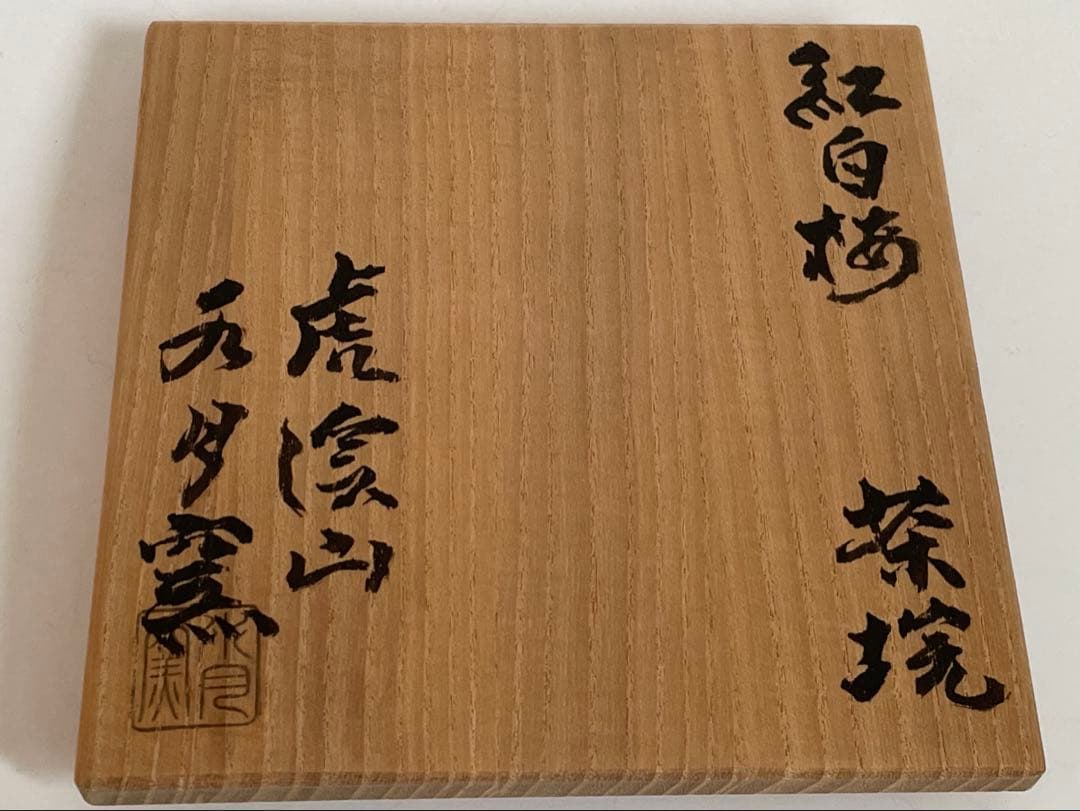 紅白梅
茶埦
虎渓山
水月窯